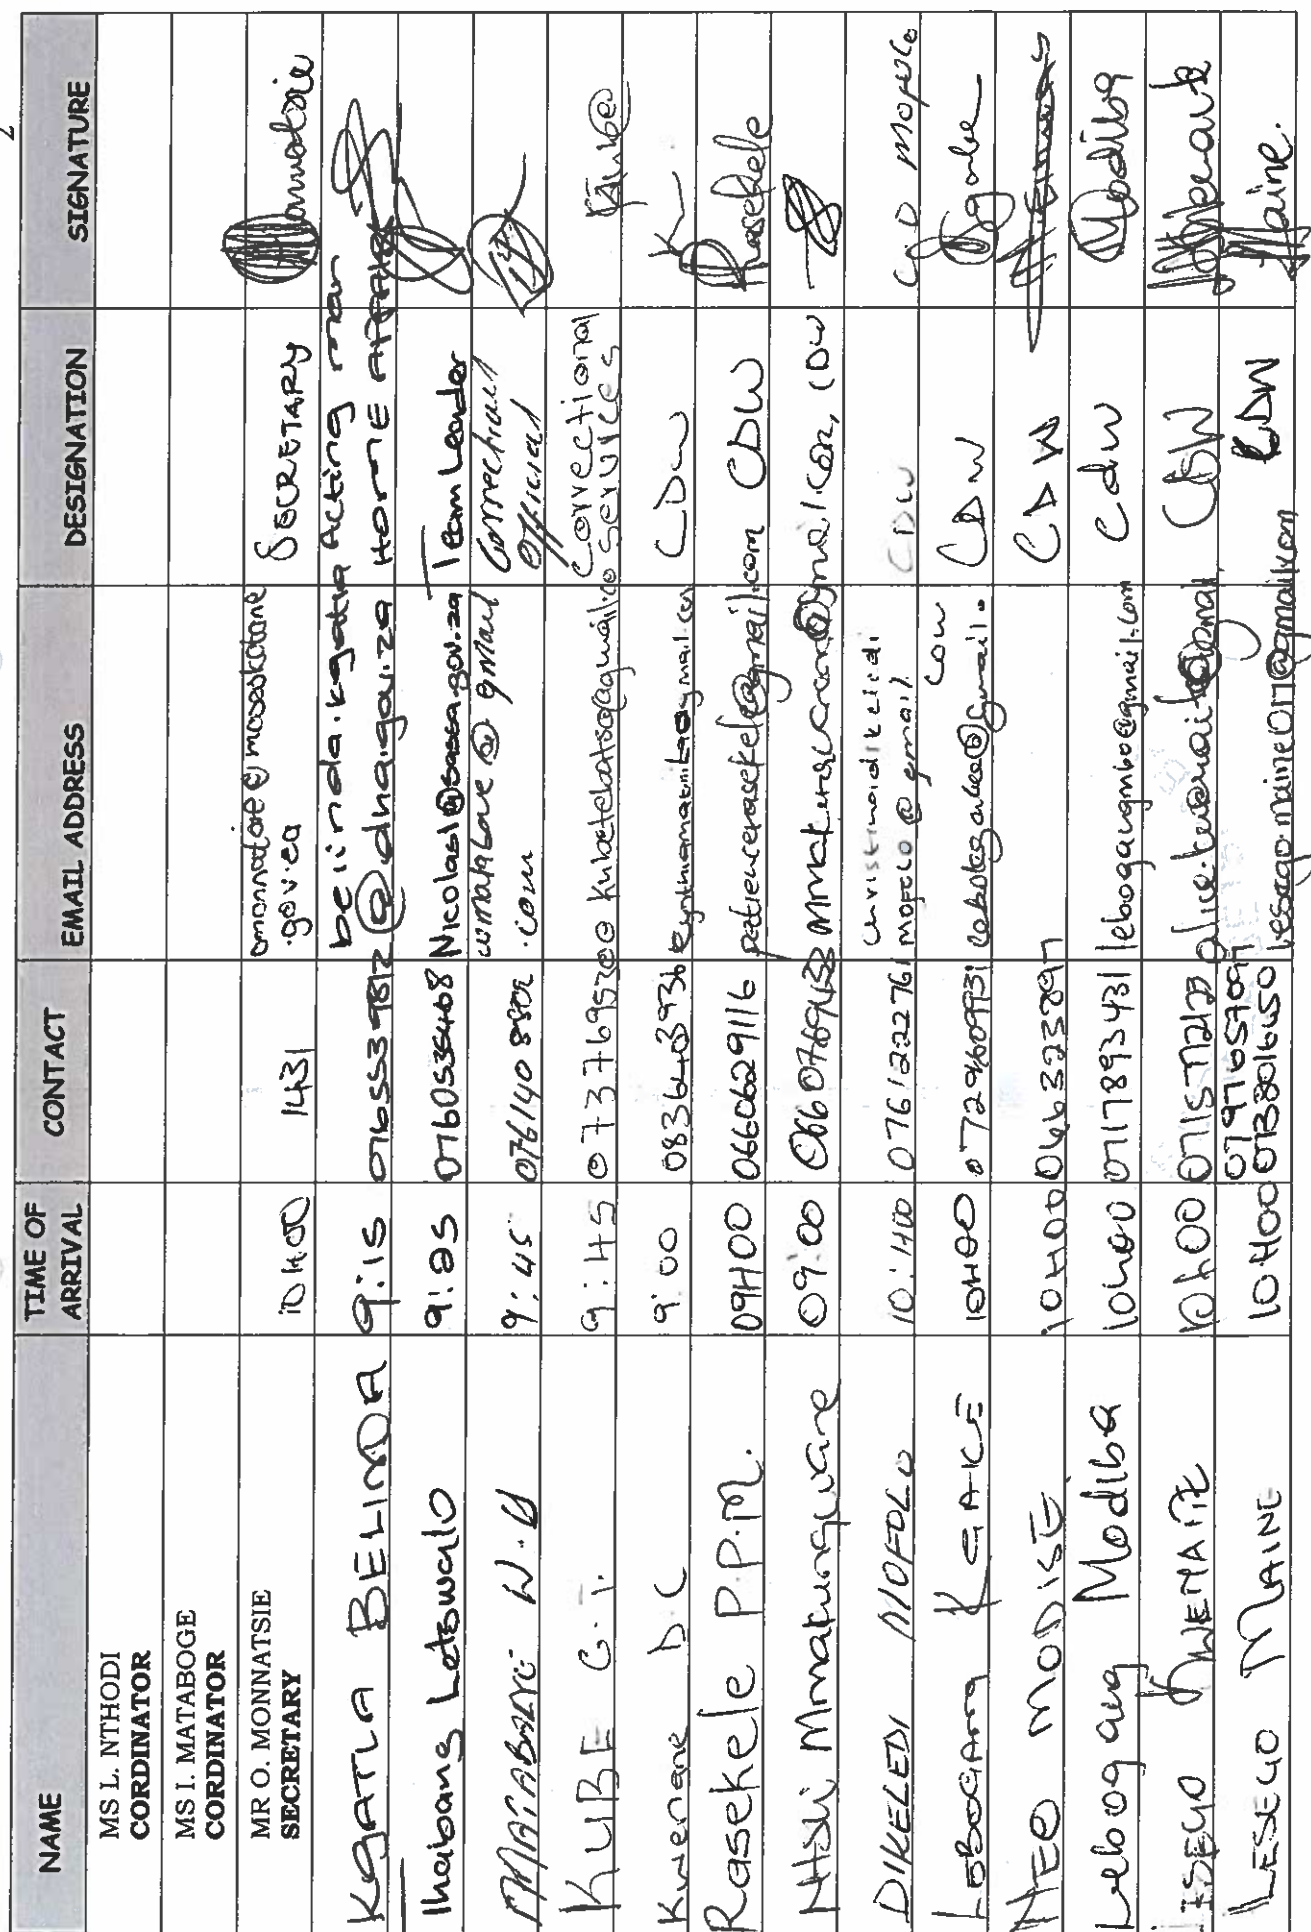 NAME TIME OF ARRIVAL CONTACT EMAIL ADDRESS DESIGNATION SIGNATURE
MS L. NTHODI
CORDINATOR
MS I. MATABOGE
CORDINATOR
MR O. MONNATSIE
SECRETARY 10H00 1431 omonnatsie@moseskotane
.gov.za SECRETARY Monnatsie
KGATLA BELINDA 9:15 0765539812 belinda.kgatla
@dha.gov.za Acting man
HOME AFFAIRS
Thabang Letswalo 9:25 0760535408 Nicolasl@sassa.gov.za Team Leader
MATABANE W.U 9:45 0761408802 wmatabane@gmail
.com Correctional
Official
KUBE G.T. 9:45 073769520 Correctional
Services Kube
Kwenane D.C 9:00 0836403936 CDW
Rasekele P.P.M. 09H00 0660629116 patiencerasekele@gmail.com CDW Rasekele
Ntsii Mmatungwane 09:00 0660769438 CDW
DIKELEDI MOFOLO 10:H00 0761222761 christinadikeledi
mofolo@gmail. CDW C.D MOFOLO
LEBOGANG KGAKE 10H00 0729609931 CDW
NEO MODISE 10H00 0663232897 CDW
Lebogang Modiba 10h00 0717893431 lebogangmbo@gmail.com Cdw Modiba
10h00 CDW
LESEGO MAINE 10H00 0797765709
0738016650 lesego.maine011@gmail.com CDW Maine.